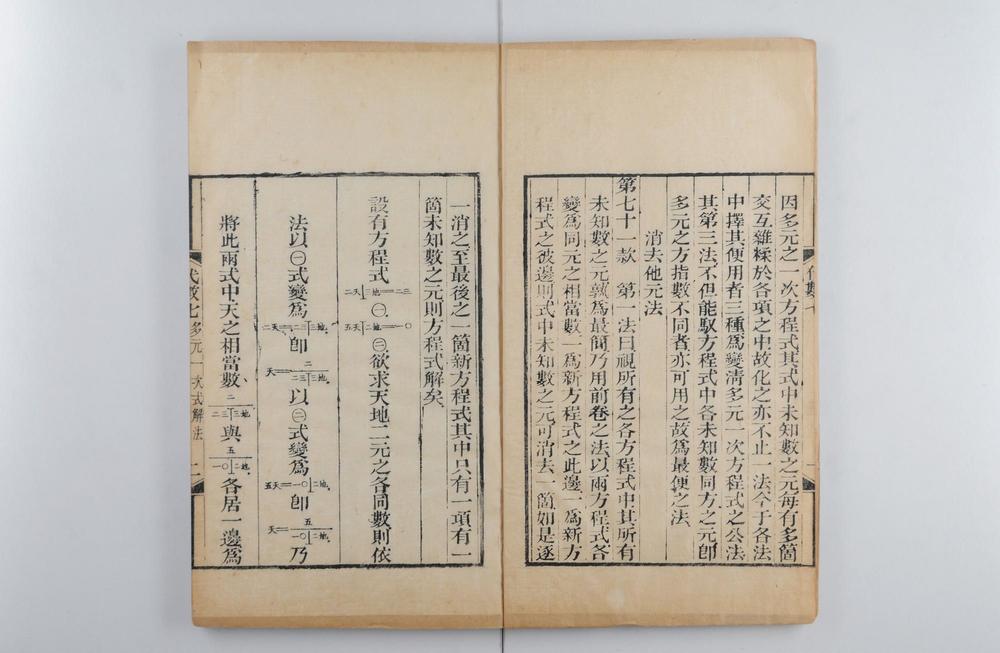 因多元之一次方程式其式中未知數之元每有多箇
交互雜糅於各項之中故化之亦不止一法今于各法
中擇其便用者三種爲變清多元一次方程式之公法
其第三法不但能馭方程式中各未知數同方之元卽
多元之方指數不同者亦可用之故爲最便之法
消去他元法
第七十一款 第一法曰視所有之各方程式中其所有
未知數之元孰爲最簡乃用前卷之法以兩方程式各
變爲同元之相當數一爲新方程式之此邊一爲新方
程式之彼邊則式中未知數之元可消去一箇如是逐
一消之至最後之一箇新方程式其中只有一項有一
箇未知數之元則方程式解矣
設有方程式 二天⊥三地=二三 ㊀ 五天⊤二地=一〇 ㊁ 欲求天地二元之各同數則依
法以㊀式變爲 二天=二三⊤三地 卽 天=二三⊤三地 二 以㊁式變爲 五天=一〇⊥二地 卽 天=一〇⊥二地 五 乃
將此兩式中天之相當數 二三⊤三地 二 與 一〇⊥二地 五 各居一邊爲
代數七 多元一次式解法 二